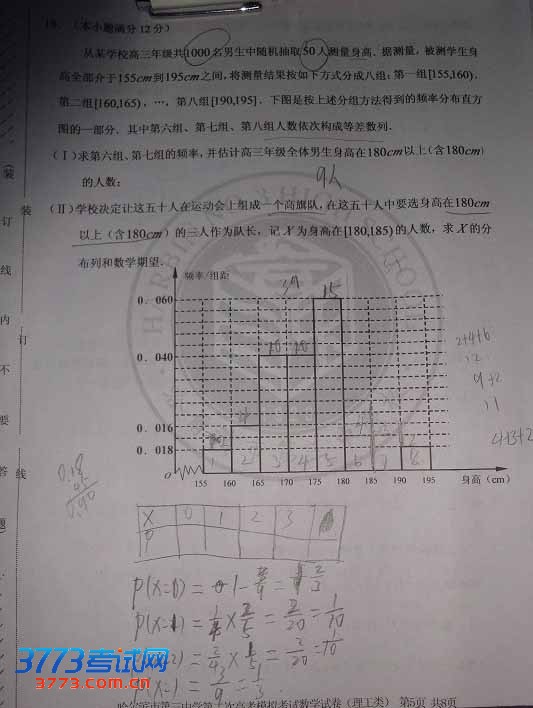 (本小题满分12分)
从某学校高三年级共1000名男生中随机抽取50人测量身高．据测量，被测学生身
高全部介于155cm到195cm之间，将测量结果按如下方式分成八组：第一组[155,160)．
第二组[160,165)，…，第八组[190,195]．下图是按上述分组方法得到的频率分布直方
图的一部分．其中第六组、第七组、第八组人数依次构成等差数列．
(Ⅰ)求第六组、第七组的频率，并估计高三年级全体男生身高在180cm以上(含180cm)
的人数；
9人
(Ⅱ)学校决定让这五十人在运动会上组成一个高旗队，在这五十人中要选身高在180cm
以上(含180cm)的三人作为队长，记X为身高在[180,185)的人数，求X的分
布列和数学期望．
频率/组距
15
0.060
0.040
10 10
0.016
0.018
1 2 3 4 5 6 7 8
o
155 160 165 170 175 180 185 190 195
身高(cm)
2+4+6
12
9+2
11
4+3+2
0.18
0.90
X 0 1 2 3
P
P(X=0) = 1- = 2/3
P(X=1) = 1/4 × 2/5 = 2/20 = 1/10
2) = 2/4 × 1/5 = 2/20 = 1/10
(X=) = 3/9 = 1/3
3773考试网
3773.com.cn
哈尔滨市第三中学第二次高考模拟考试数学试卷(理工类) 第5页 共8页
(装
订
线
内
不
要
答
题)
装
订
线